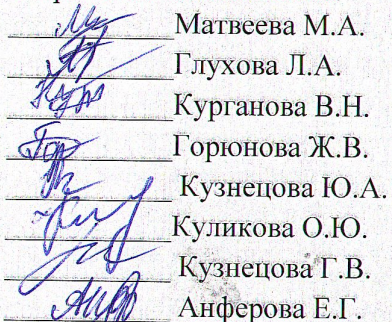 Матвеева М.А.
Глухова Л.А.
Курганова В.Н.
Горюнова Ж.В.
Кузнецова Ю.А.
Куликова О.Ю.
Кузнецова Г.В.
Анферова Е.Г.